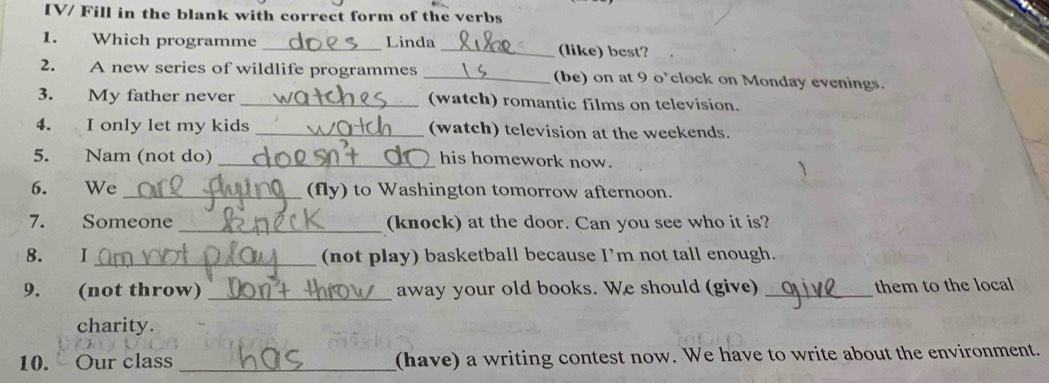 IV/ Fill in the blank with correct form of the verbs
1. Which programme does Linda like (like) best?
2. A new series of wildlife programmes is (be) on at 9 o'clock on Monday evenings.
3. My father never watches (watch) romantic films on television.
4. I only let my kids watch (watch) television at the weekends.
5. Nam (not do) doesn't do his homework now.
6. We are flying (fly) to Washington tomorrow afternoon.
7. Someone (knock) at the door. Can you see who it is?
8. I am not play (not play) basketball because I'm not tall enough.
9. (not throw) Don't throw away your old books. We should (give) give them to the local
charity.
10. Our class has (have) a writing contest now. We have to write about the environment.